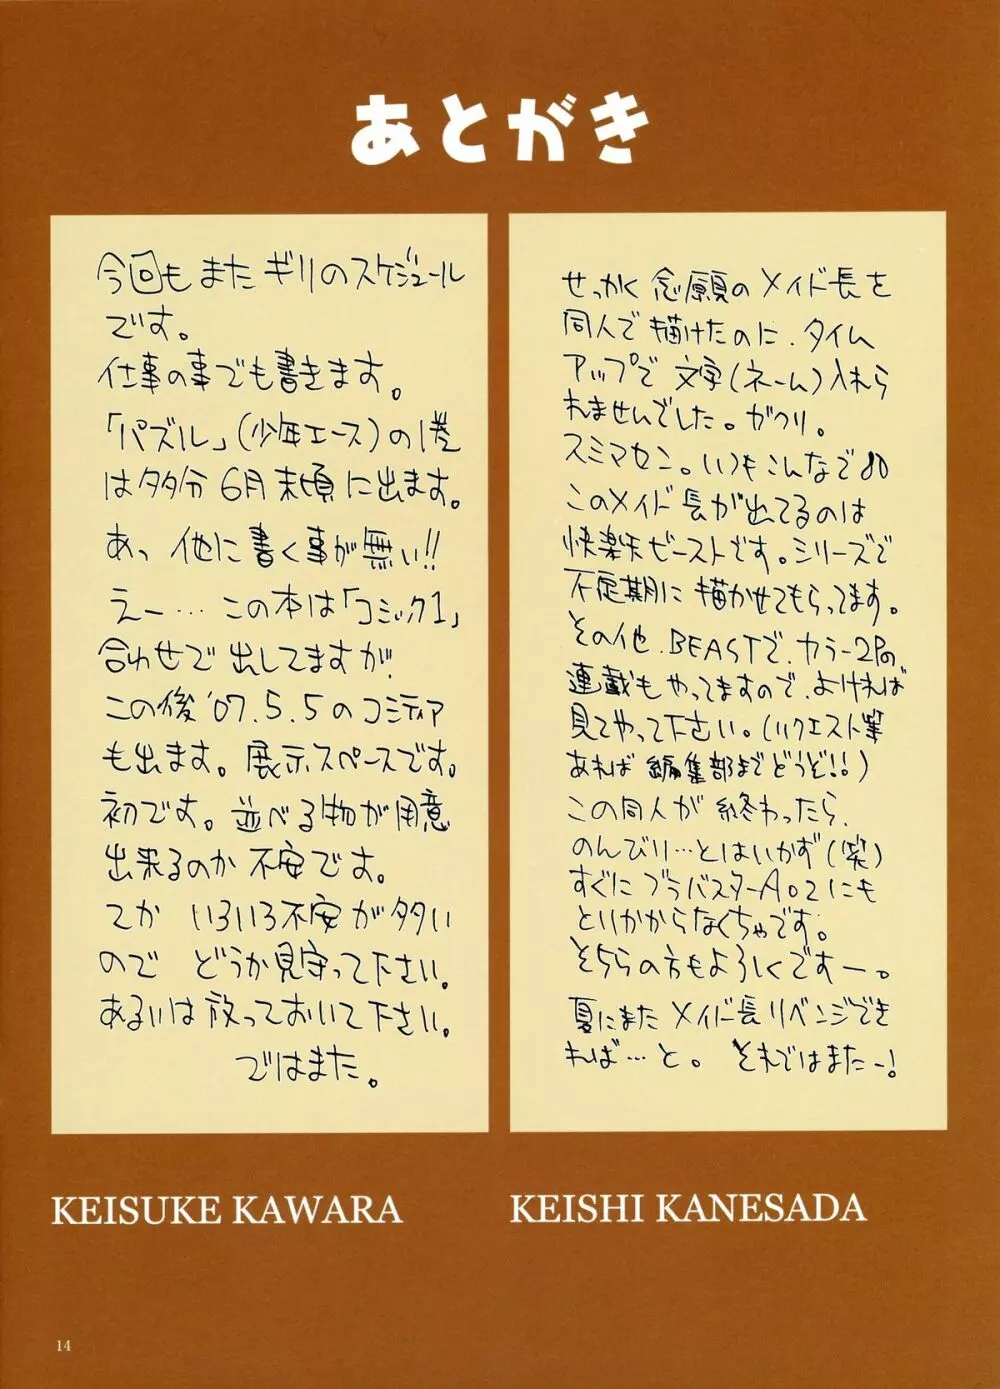 あとがき
今回もまたギリのスケジュール
です。
仕事の事でも書きます。
「パズル」(少年エース)の1巻
は多分6月末頃に出ます。
あっ 他に書く事が無い!!
えー…この本は「コミック1」
合わせで出してますが、
この後'07.5.5のコミティア
も出ます。展示スペースです。
初です。並べる物が用意
出来るのか不安です。
てか いろいろ不安が多い
ので どうか見守って下さい。
あるいは放っておいて下さい。
ではまた。
KEISUKE KAWARA
せっかく念願のメイド長を
同人で描けたのに、タイム
アップで文字(ネーム)入れら
れませんでした。ガクリ。
スミマセン。いつもこんなで
このメイド長が出てるのは
快楽天ビーストです。シリーズで
不定期に描かせてもらってます。
その他、BEASTで、カラー2Pの、
連載もやってますので、よければ
見てやって下さい。(リクエスト等
あれば編集部までどうぞ!!)
この同人が終わったら、
のんびり…とはいかず(笑)
すぐにブラバスターA02にも
とりかからなくちゃです。
そちらの方もよろしくですー。
夏にまたメイド長リベンジでき
れば…と。それではまたー!
KEISHI KANESADA
14